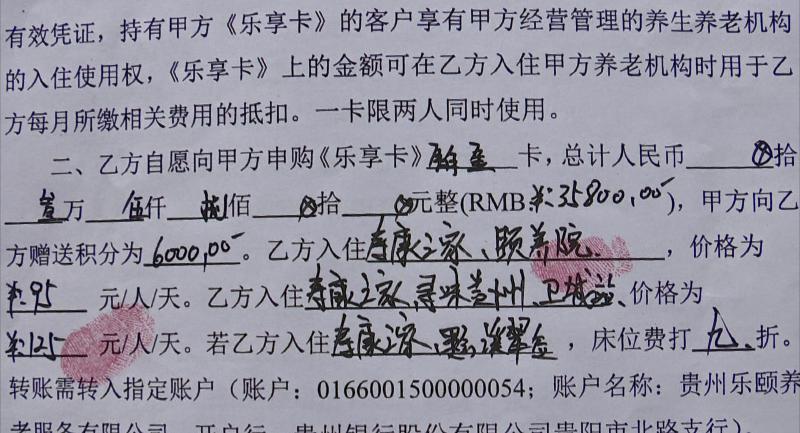 有效凭证，持有甲方《乐享卡》的客户享有甲方经营管理的养生养老机构
的入住使用权，《乐享卡》上的金额可在乙方入住甲方养老机构时用于乙
方每月所缴相关费用的抵扣。一卡限两人同时使用。
二、乙方自愿向甲方申购《乐享卡》 卡，总计人民币 拾
万 伍仟 捌佰 拾 元整(RMB:¥:35800,00)，甲方向乙
方赠送积分为6000,00。乙方入住寿康之家、颐养院、，价格为
¥:95 元/人/天。乙方入住寿康之家、寻味贵州、卫城 、价格为
¥:125 元/人/天。若乙方入住寿康之家、 ，床位费打九折。
转账需转入指定账户（账户：0166001500000054；账户名称：贵州乐颐养
老服务有限公司 开户行 贵州银行股份有限公司贵阳市北路支行）。